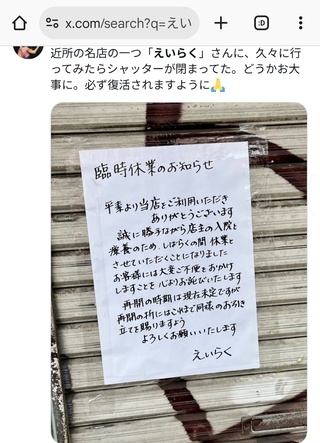 x.com/search?q=えい
近所の名店の一つ「えいらく」さんに、久々に行
ってみたらシャッターが閉まってた。どうかお大
事に。必ず復活されますように🙏
臨時休業のお知らせ
平素より当店をご利用いただき
ありがとうございます
誠に勝手ながら店主の入院と
療養のため、しばらくの間 休業と
させていただくことになりました
お客様には大変ご不便をおかけ
しますことを心よりお詫びいたします
再開の時期は現在未定ですが
再開の折にはこれまで同様のお引き
立てを賜りますよう
よろしくお願いいたします
えいらく